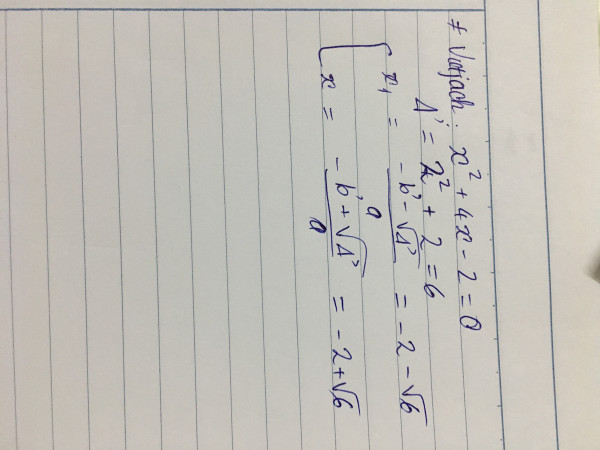 # Vietjack: x² + 4x - 2 = 0
Δ' = 2² + 2 = 6
x₁ = (-b' - √Δ') / a = -2 - √6
x = (-b' + √Δ') / a = -2 + √6